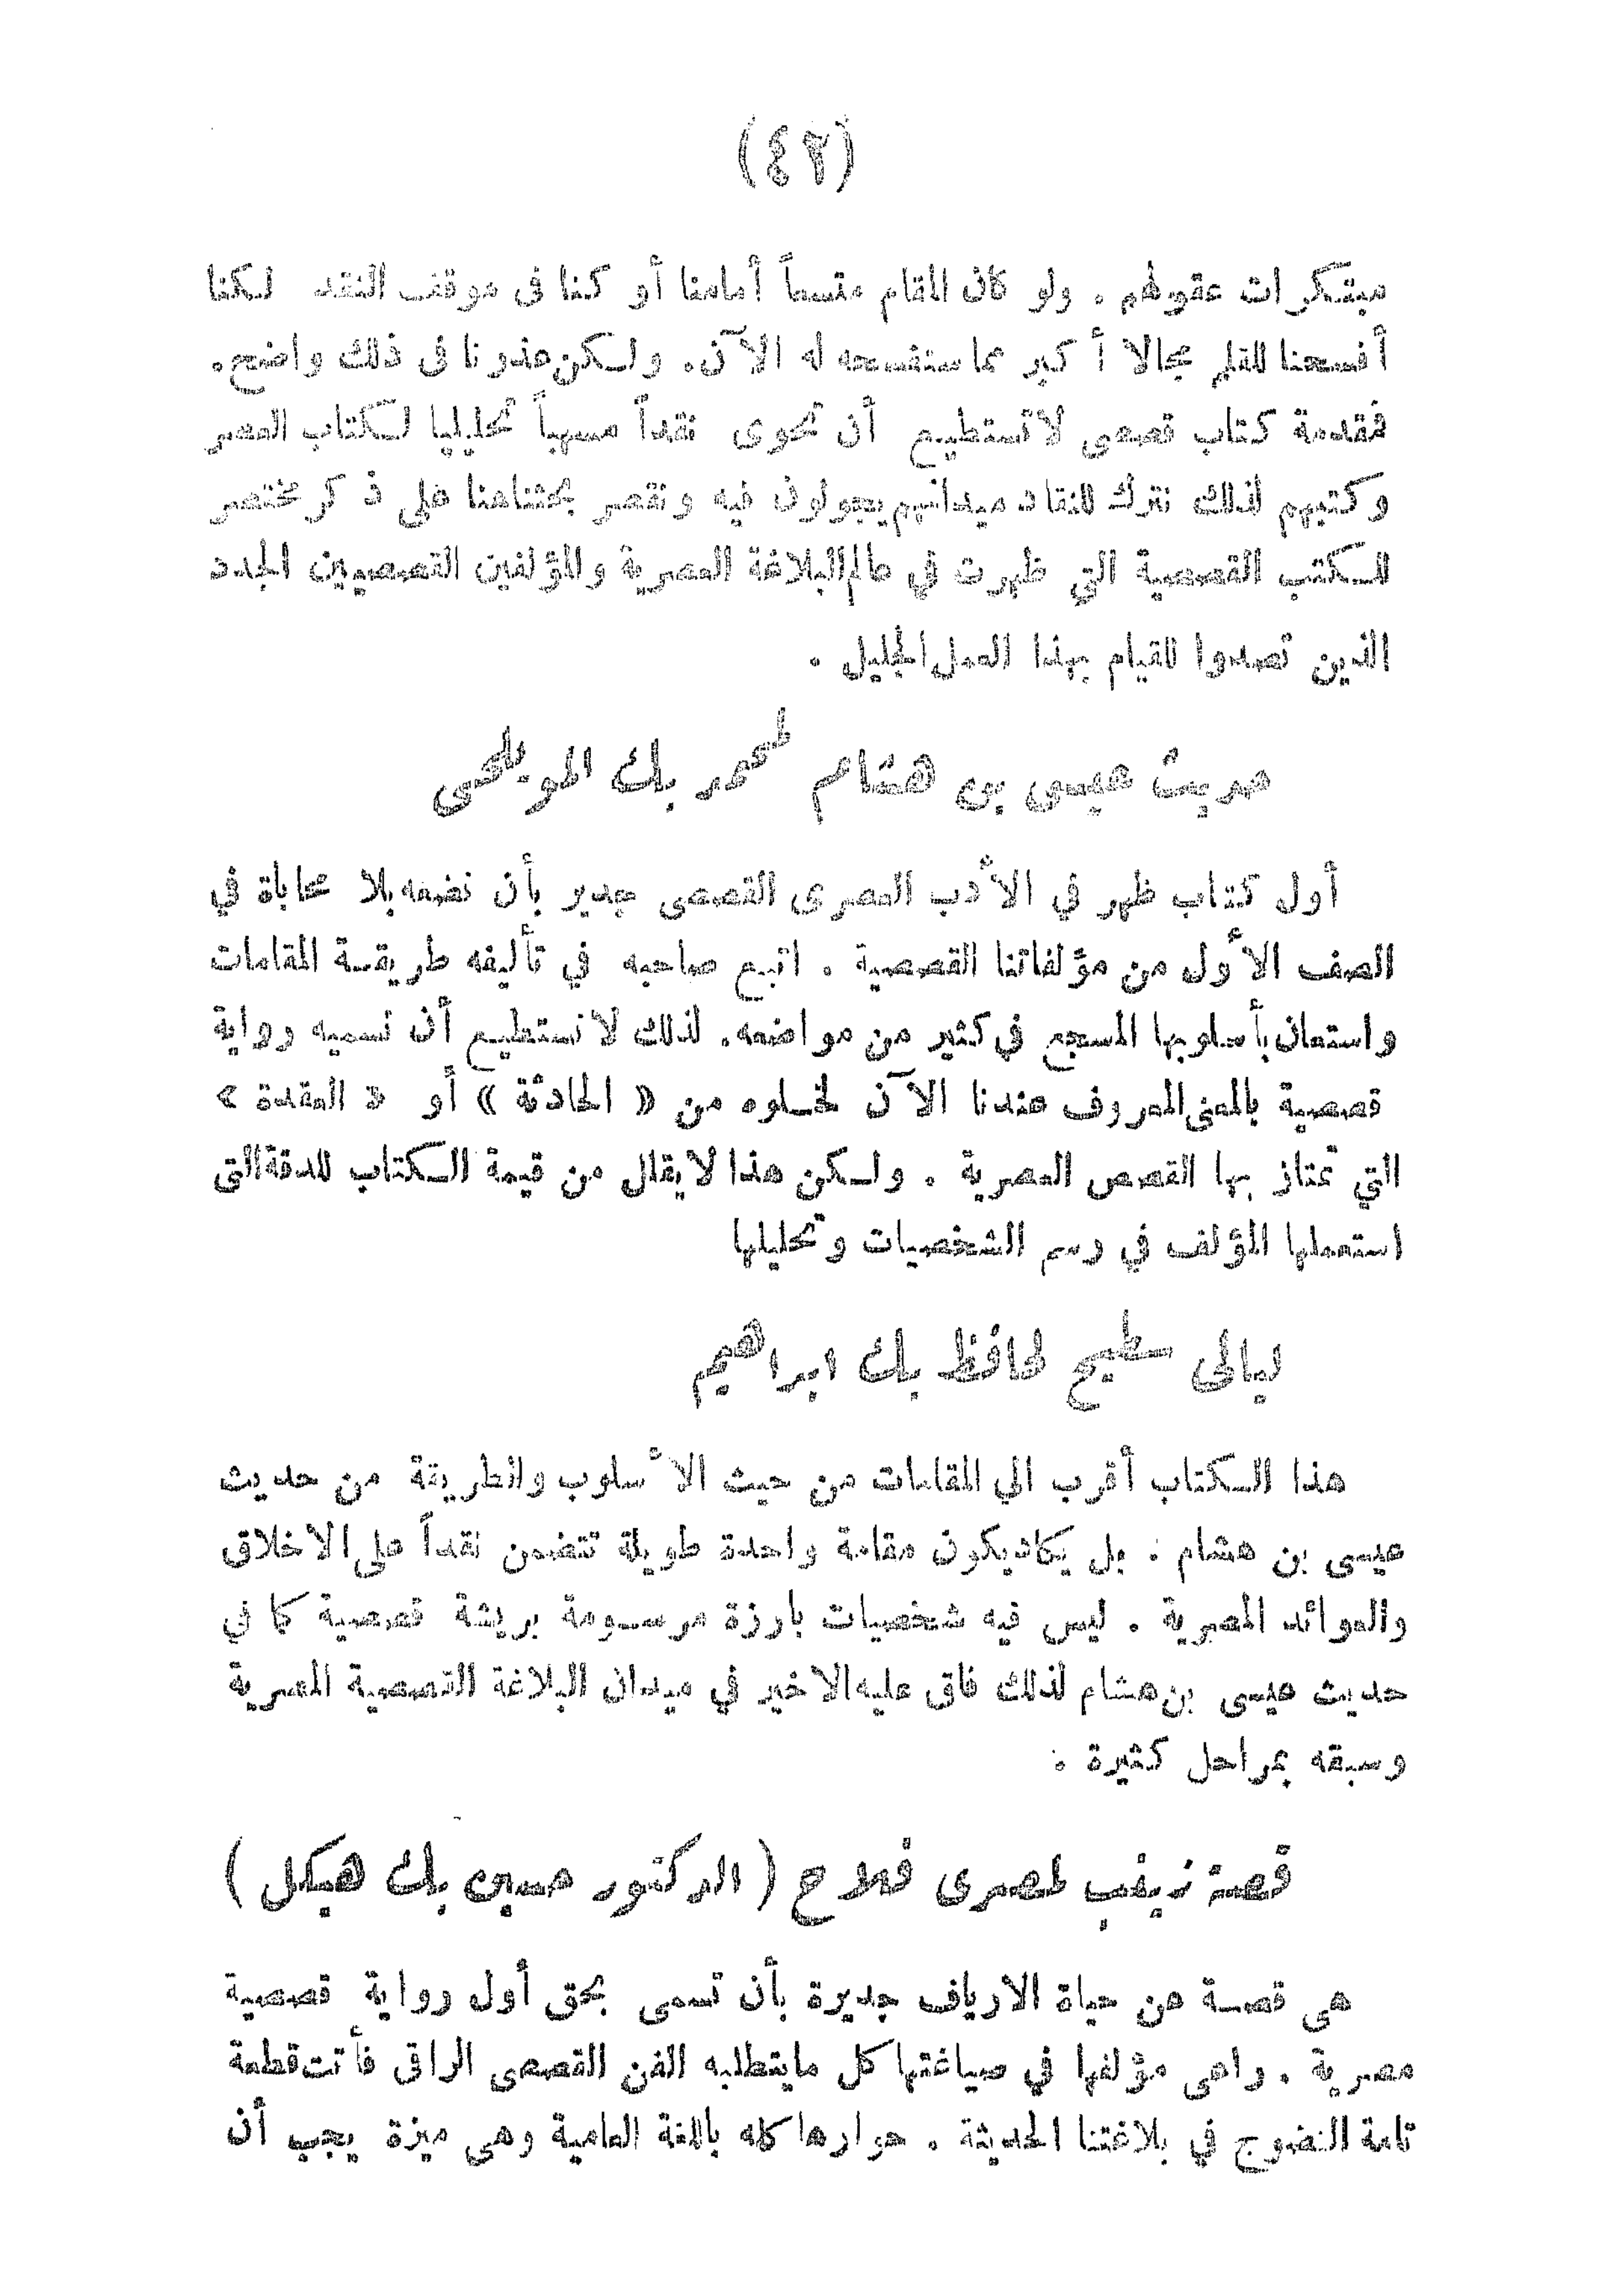 (٤٢)
مبتكرات عقولهم . ولو كان المقام متسعاً أمامنا أو كنا فى موقف النقد لكنا
أفسحنا للقلم مجالا أكبر مما سنفسحه له الآن. ولكن عذرنا فى ذلك واضح.
فمقدمة كتاب قصصى لا تستطيع أن تحوى نقداً مسهباً تحليليا لكتاب العصر
وكتبهم لذلك نترك للنقاد ميدانهم يجولون فيه ونقصر بحثنا هنا على ذكر مختصر
للكتب القصصية التي ظهرت في عالم البلاغة العصرية والمؤلفين القصصيين الجدد
الذين تصدوا للقيام بهذا العمل الجليل .
حديث عيسى بن هشام لمحمد بك المويلحى
أول كتاب ظهر في الأدب العصرى القصصى جدير بأن نضعه بلا محاباة في
الصف الأول من مؤلفاتنا القصصية . اتبع صاحبه في تأليفه طريقة المقامات
واستعان بأسلوبها المسجع في كثير من مواضعه. لذلك لا نستطيع أن نسميه رواية
قصصية بالمعنى المعروف عندنا الآن لخلوه من « الحادثة » أو « العقدة »
التي تمتاز بها القصص العصرية . ولكن هذا لا يقلل من قيمة الكتاب للدقة التى
استعملها المؤلف في رسم الشخصيات وتحليلها
ليالى سطيح لحافظ بك ابراهيم
هذا الكتاب أقرب الي المقامات من حيث الأسلوب والطريقة من حديث
عيسى بن هشام . بل يكاد يكون مقامة واحدة طويلة تتضمن نقداً على الاخلاق
والعوائد المصرية . ليس فيه شخصيات بارزة مرسومة بريشة قصصية كما في
حديث عيسى بن هشام لذلك فاق عليه الاخير في ميدان البلاغة القصصية المصرية
وسبقه بمراحل كثيرة .
قصة زينب لمصرى فلاح ( الدكتور حسين بك هيكل )
هى قصة عن حياة الارياف جديرة بأن تسمى بحق أول رواية قصصية
مصرية . راعى مؤلفها في صياغتها كل ما يتطلبه الفن القصصى الراقى فأتت قطعة
تامة النضوج في بلاغتنا الحديثة . حوارها كله باللغة العامية وهى ميزة يجب أن